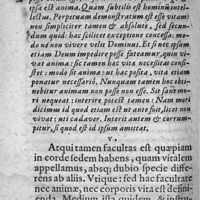 est anima. Quàm subtilis est hominū intel-
lectus. Perpetuam demonstratum est esse viuam:
non simpliciter tamen & absolutè, sed secun-
dum quid: hac scilicet exceptione concessa: mo-
do ne non viuere velit Dominus. Et sine ipsum
etiam Deum impedire posse fateamur, quin viua
sit: modo si anima: ut hac posita, vita etiam
ponatur necessariò. Nunquam tamen hoc obti-
nebitur animam non posse non esse. Sit sanè mor-
ti nequeat: interire potest tamen. Nam mori
dicimus id quod etiam est ut ante fuit, licet non
viuat: uti cadauer. Interit autem & corrum-
pitur, si quod est id ipsum amittat.
V.
Atqui tamen facultas est quæpiam
in corde sedem habens, quam vitalem
appellamus, absq; dubio specie diffe-
rens ab aliis. Vtique: sed hac facultate
nec animæ, nec corporis vita est defini-
enda. Medium ista quidem, & instru-